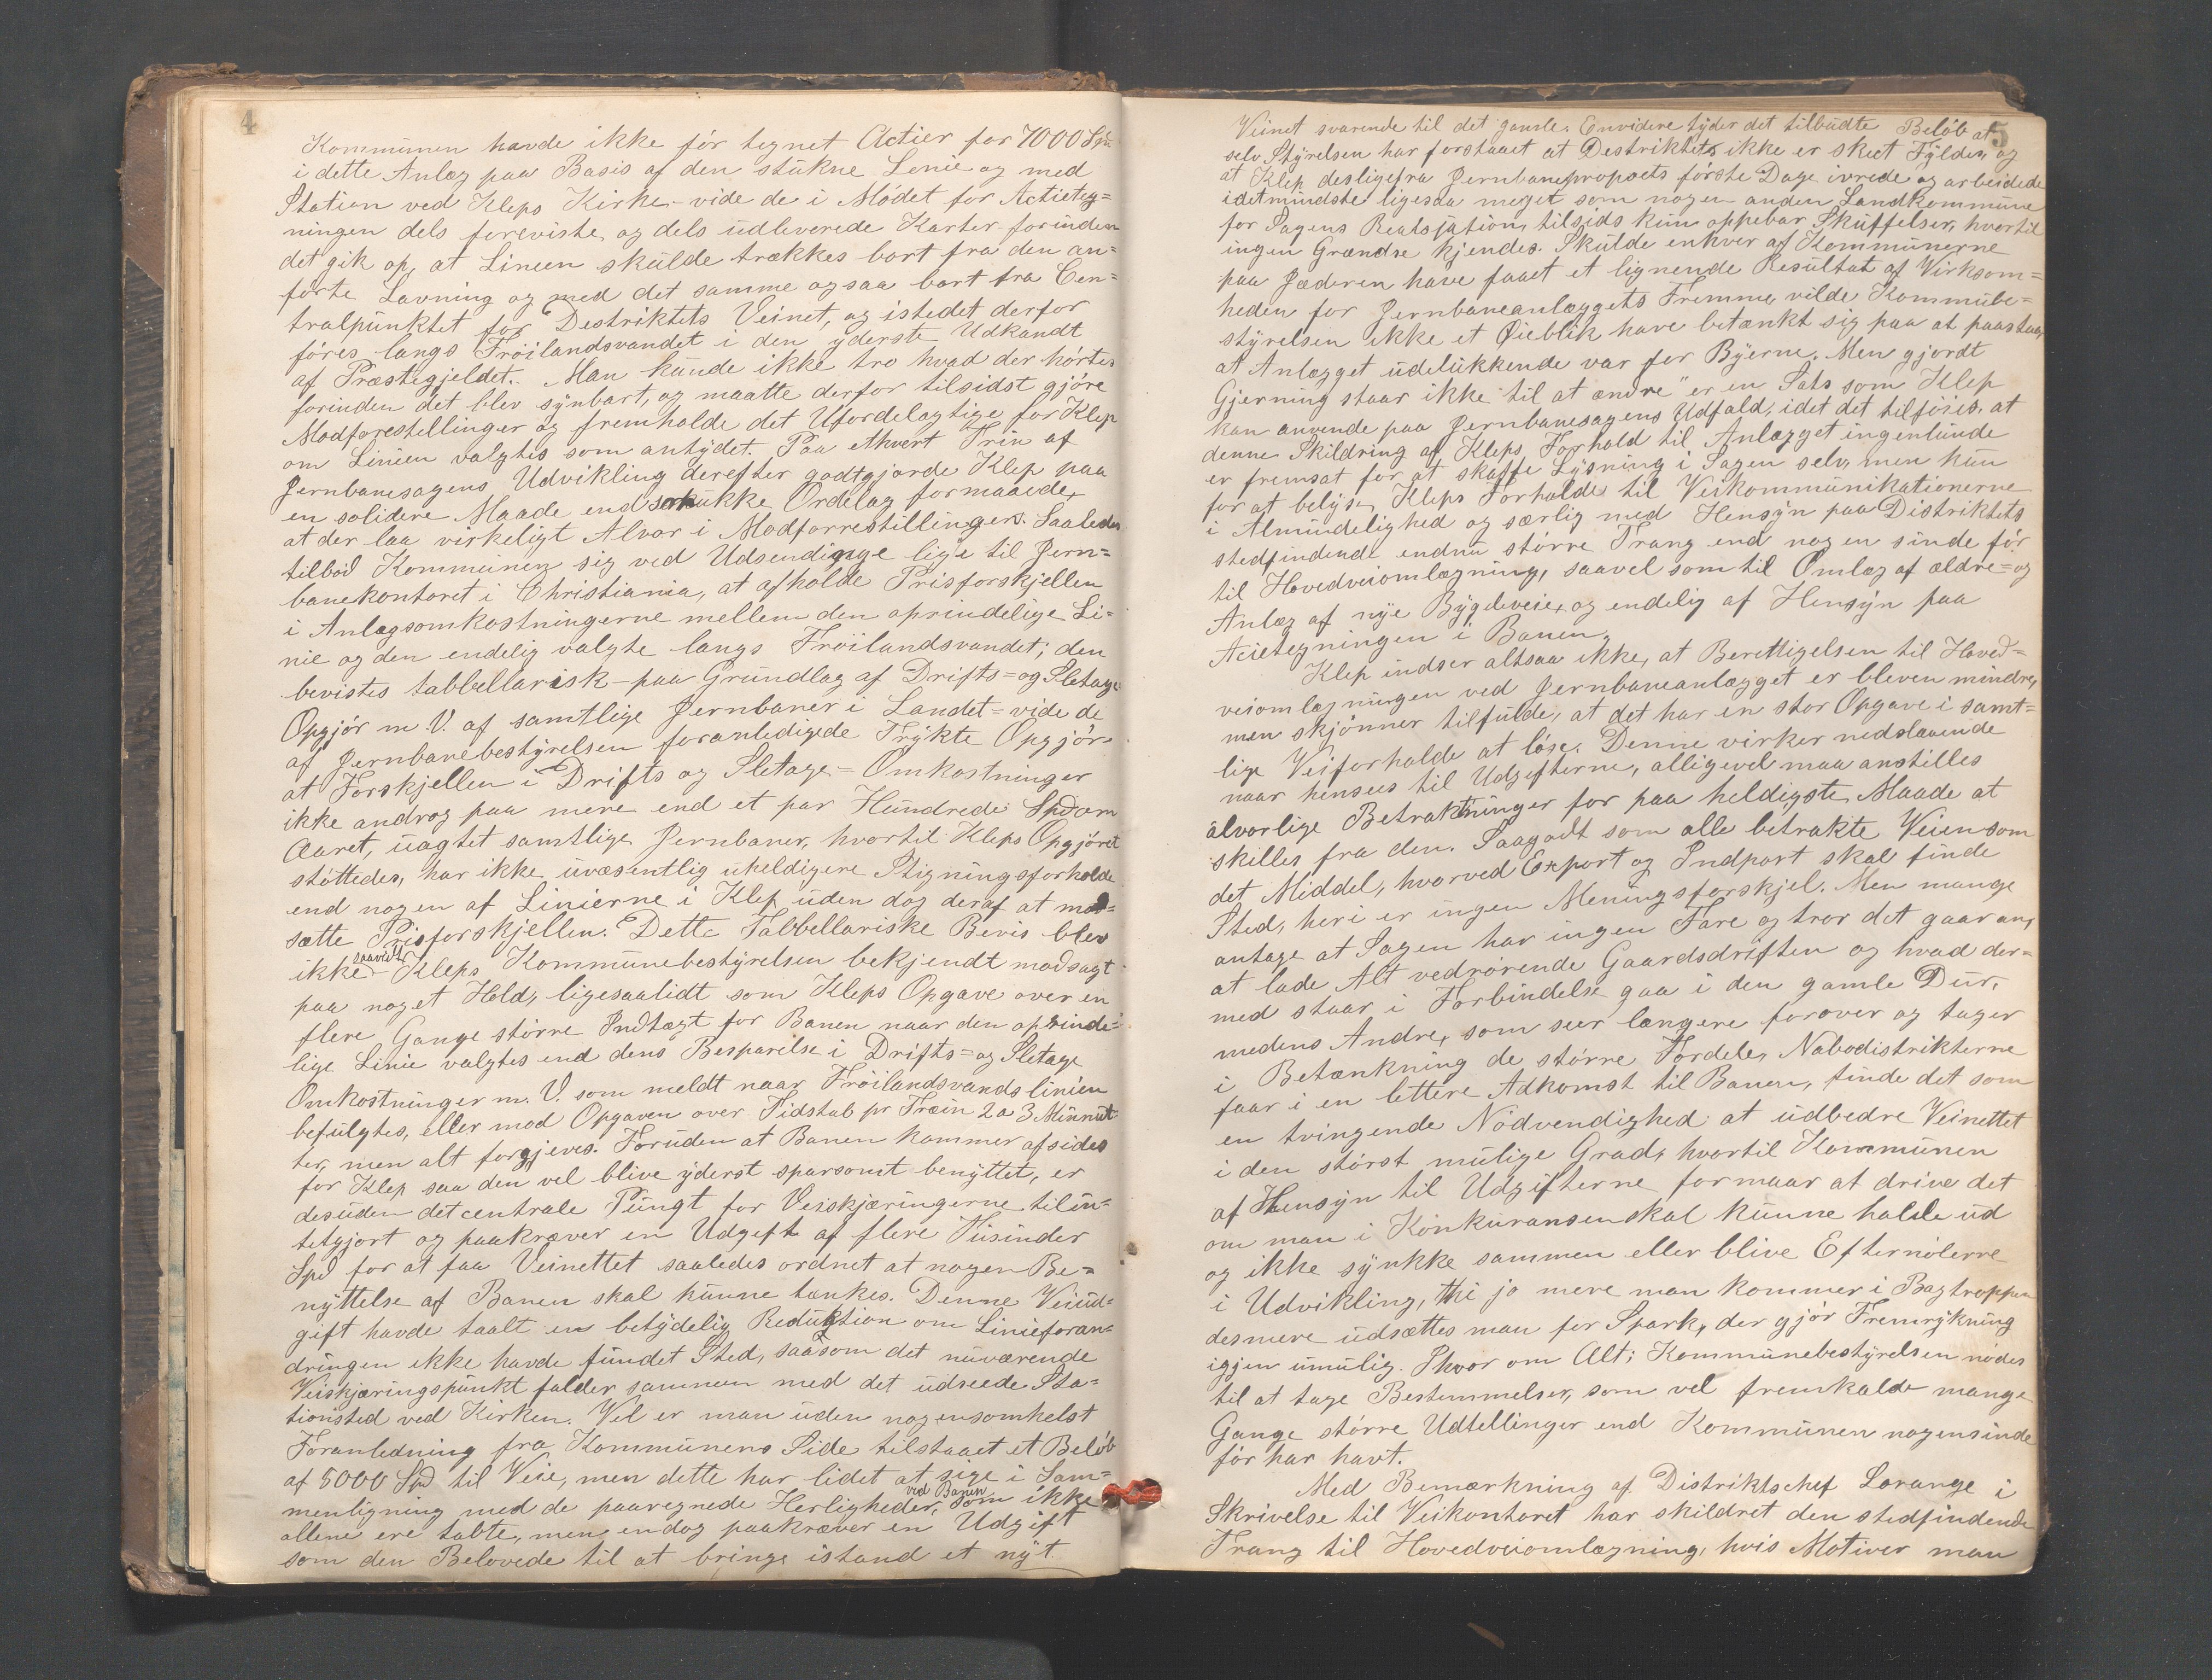 4
Kommunen havde ikke før tegnet Actier for 7000 Spd
i dette Anlæg paa Basis af den stukne Linie og med
Station ved Kleps Kirke - vide de i Mødet for Actieteg=
ningen dels foreviste og dels udleverede Karter forinden
det gik op, at Linien skulde trækkes bort fra den an=
førte Lavning og med det samme ogsaa bort fra Cen=
tralpunktet for Destriktets Veinet, og istedet derfor
føres langs Frøilandsvandet i den yderste Udkandt
af Præstegjeldet. Man kunde ikke tro hvad der hørtes
forinden det blev synbart, og maatte derfor tilsidst gjøre
Modforestillinger og fremholde det Ufordelagtige for Klep
om Linien valgtes som antydet. Paa ethvert Trin af
Jernbanesagens Udvikling derefter godtgjorde Klep paa
en solidere Maade end smukke Ordelag formaaede,
at der laa virkeligt Alvor i Modforrestillingen. Saaledes
tilbød Kommunen sig ved Udsendinge lige til Jern=
banekontoret i Christiania, at afholde Prisforskjellen
i Anlægsomkostningerne mellem den oprindelige Li=
nie og den endelig valgte langs Frøilandsvandet; den
bevistes tabbellarisk - paa Grundlag af Drifts= og Sletage
Opgjør m. V. af samtlige Jernbaner i Landet - vide de
af Jernbanebestyrelsen foranledigede Trykte Opgjør -
at Forskjellen i Drifts og Sletage = Omkostninger
ikke androg paa mere end et par Hundrede Spd om
Aaret, uagtet samtlige Jernbaner, hvortil Kleps Opgjøret
støttedes, har ikke uvæsentlig uheldigere Stigningsforholde
end nogen af Linierne i Klep uden dog deraf at mod=
sætte Prisforskjellen. Dette Tabbellariske Bevis blev
ikke saavidt Kleps Kommunebestyrelsen bekjendt modsagt
paa noget Hold, ligesaalidt som Kleps Opgave over en
flere Gange større Indtægt for Banen naar den oprinde=
lige Linie valgtes end dens Besparelse i Drifts= og Sletage
Omkostninger m. V. som meldt naar Frøilandsvandslinien
befulgtes, eller mod Opgaven over Tidstab pr Train 2 a 3 Minnut=
ter, men alt forgjeves. Foruden at Banen kommer afsides
for Klep saa den vel blive yderst sparsomt benyttet, er
desuden det centrale Pungt for Veiskjæringerne tilin=
tetgjort og paakræver en Udgift af flere Tusinder
Spd for at faa Veinettet saaledes ordnet at nogen Be=
nyttelse af Banen skal kunne tænkes. Denne Veiud=
gift havde taalt en betydelig Reduktion om Linieforan=
dringen ikke havde fundet Sted, saasom det nuværende
Veiskjæringspunkt falder sammen med det udseede Sta=
tionsted ved Kirken. Vel er man uden nogensomhelst
Foranledning fra Kommunens Side tilstaaet et Beløb
af 5000 Spd til Veie, men dette har lidet at sige i Sam=
menligning med de paaregnede Herligheder, ved Banen som ikke
allene ere tabte, men endog paakræver en Udgift
som den Belovede til at bringe istand et nyt
5
Veinet svarende til det gamle. Envidere tyder det tilbudte Beløb at
selv Styrelsen har forstaaet at Destriktets ikke er skeet Fylden og
at Klep desligefra Jernbanepropoets første Dage ivrede og arbeidede
idetmindste ligesaa meget som nogen anden Landkommune
for Sagens Realisation, tilsids kun oppebar Skuffelser, hvortil
ingen Grændse kjendes. Skulde enhver af Kommunerne
paa Jæderen have faaet et lignende Resultat af Virksom=
heden for Jernbaneanlæggets Fremme vilde Kommube=
styrelsen ikke et Øieblik have betænkt sig paa at paastaa,
at Anlægget udelukkende var for Byerne. Men gjordt
Gjerning staar ikke til at ændre" er en Sats som Klep
kan anvende paa Jernbanesagens Udfald, idet det tilføies, at
denne Skildring af Kleps Forhold til Anlægget ingenlunde
er fremsat for at skaffe Lysning i Sagen selv, men kun
for at belyse Kleps Forholde til Veikommunikationerne
i Almindelighed og særlig med Hensyn paa Distriktets
stedfindende endnu større Trang end nogen sinde før
til Hovedveiomlægning, saavel som til Omlæg af ældre= og
Anlæg af nye Bygdeveie, og endelig af Hensyn paa
Acietegningen i Banen.
Klep indser altsaa ikke, at Berettigelsen til Hoved=
veiomlægningen ved Jernbaneanlægget er bleven mindre,
men skjønner tilfulde, at det har en stor Opgave i samt=
lige Veiforholde at løse. Denne virker nedslaaende
naar hensees til Udgifterne, alligevel maa anstilles
alvorlige Betraktninger for paa heldigste Maade at
skilles fra den. Saagodt som alle betrakte Veien som
det Middel, hvorved Export og Indport skal finde
Sted, heri er ingen Meningsforskjel. Men mange
antage at Sagen har ingen Fare og tror det gaar an,
at lade Alt vedrørende Gaardsdriften og hvad der=
med staar i Forbindelse gaa i den gamle Dur,
medens Andre, som seer længere forover og tager
i Betænkning de større Fordele, Nabodistrikterne
faar i en lettere Adkomst til Banen, finde det som
en tvingende Nødvendighed at udbedre Veinettet
i den størst mulige Grad, hvortil Kommunen
af Hensyn til Udgifterne formaar at drive det
om man i Konkuransen skal kunne halde ud
og ikke synkke sammen eller blive Efternølerre
i Udvikling, thi jo mere man kommer i Bagtroppen
desmere udsættes man for Spark, der gjør Fremrykning
igjen umulig. Ihvor om Alt; Kommunebestyrelsen nødes
til at tage Bestemmelser, som vel fremkalde mange
Gange større Udtellinger end Kommunen nogensinde
før har havt.
Med Bemærkning af Distriktschef Lorange i
Skrivelse til Veikontoret har skildret den stedfindende
Trang til Hovedveiomlægning, hvis Motiver man